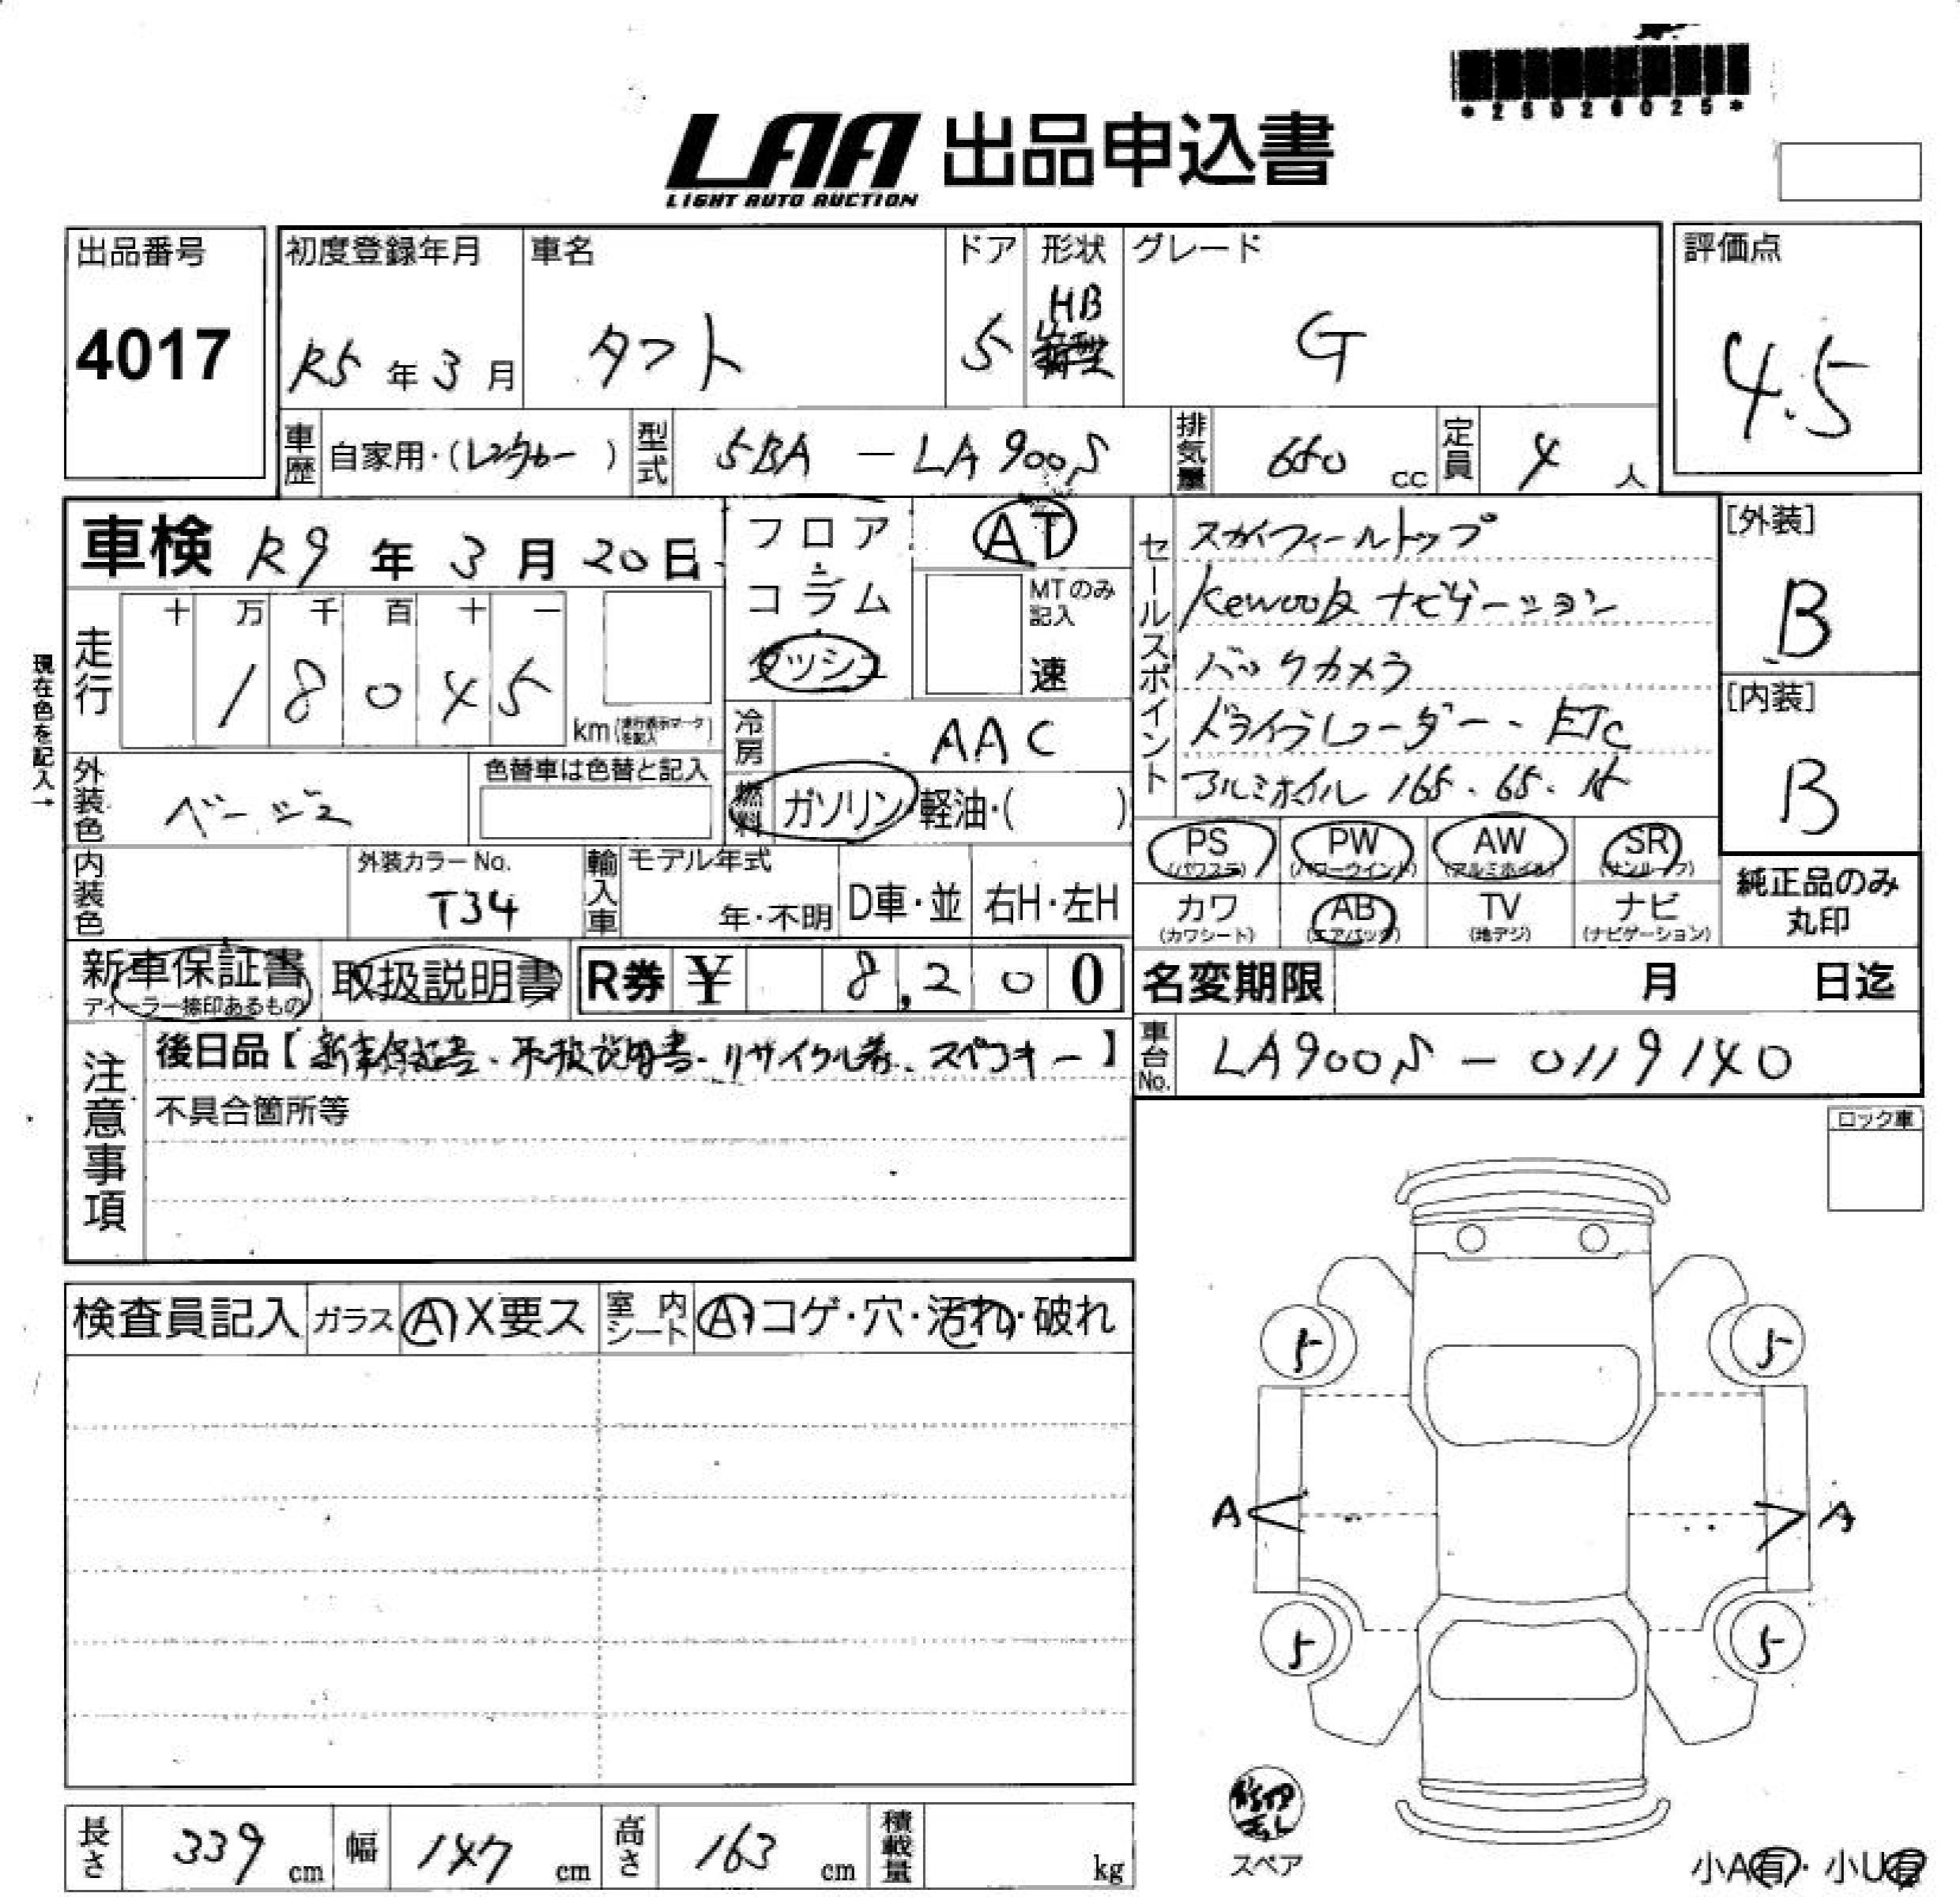 *25026025*
LAA 出品申込書
LIGHT AUTO AUCTION
出品番号
4017
初度登録年月
R5年3月
車名
タフト
ドア
5
形状
HB
グレード
G
評価点
4.5
車歴 自家用・(レンタカー)
型式 5BA - LA900S
排気量 660 cc
定員 4人
車検 R9年3月20日
フロア
コラム
ダッシュ
AT
MTのみ記入
速
現在色を記入→
走行
十 万 千 百 十 一
1 8 0 4 5
km
冷房 AAC
燃料 ガソリン・軽油・( )
外装色 ベージュ
色替車は色替と記入
内装色
外装カラーNo.
T34
輸入車
モデル年式
年・不明
D車・並
右H・左H
セールスポイント
スカイフィールトップ
ナビゲーション
バックカメラ
ETC
アルミホイル 165.65.15
[外装]
B
[内装]
B
PS
(パワステ)
PW
(パワーウインド)
AW
(アルミホイル)
SR
(サンルーフ)
カワ
(カワシート)
AB
(エアバッグ)
TV
(地デジ)
ナビ
(ナビゲーション)
純正品のみ
丸印
新車保証書
ディーラー捺印あるもの
取扱説明書
R券 ¥ 8,200
名変期限 月 日迄
注意事項
後日品【新車保証書・取扱説明書・リサイクル券・スペアキー】
不具合箇所等
車台No. LA900S - 0119140
ロック車
検査員記入
ガラス A X要ス
室内シート A・コゲ・穴・汚れ・破れ
5
5
A
A
5
5
スペア
小A有・小U有
長さ 339 cm
幅 147 cm
高さ 163 cm
積載量 kg